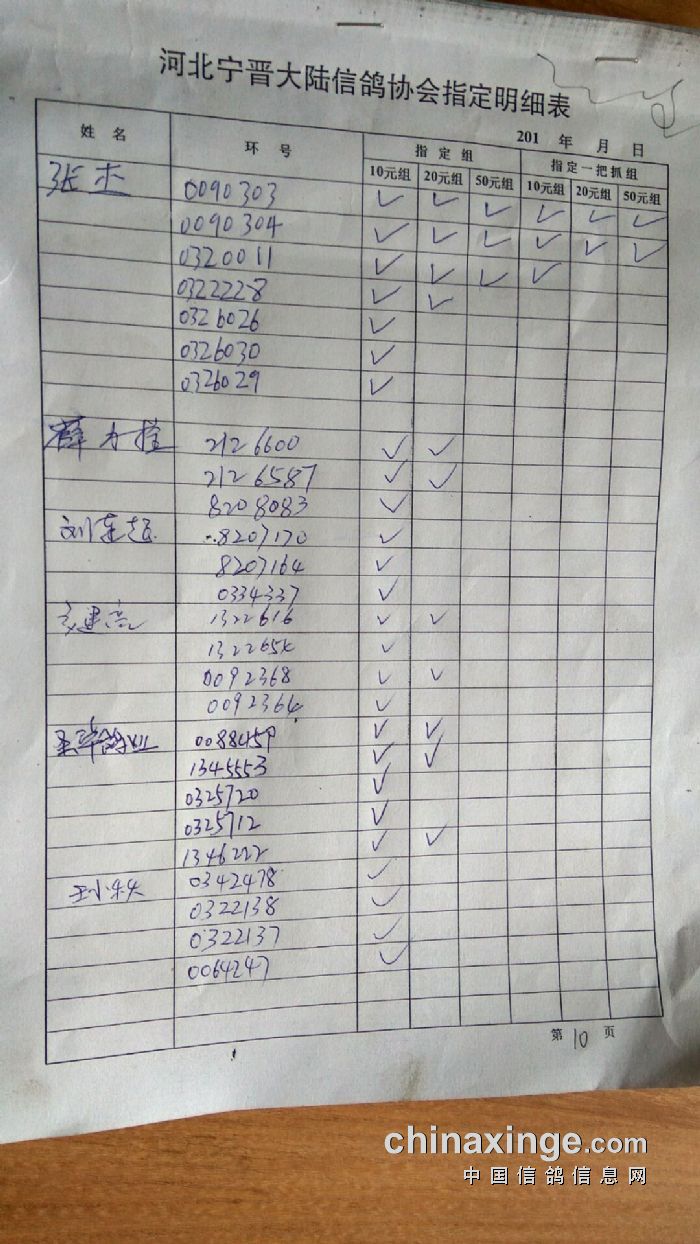 河北宁晋大陆信鸽协会指定明细表
201 年 月 日
姓 名 环 号 指 定 组 指 定 一 把 抓 组
10元组 20元组 50元组 10元组 20元组 50元组
张杰 0090303 ✓ ✓ ✓ ✓ ✓ ✓
0090304 ✓ ✓ ✓ ✓ ✓ ✓
0320011 ✓ ✓ ✓ ✓
0322228 ✓ ✓
0326026 ✓
0326030 ✓
0326029 ✓
薛力 2126600 ✓ ✓
2126587 ✓ ✓
8208083 ✓
刘东超 8207170 ✓
8207164 ✓
0334337 ✓
1322616 ✓ ✓
✓
0092368 ✓ ✓
0092364 ✓
0088459 ✓ ✓
1345553 ✓ ✓
0325720 ✓
0325712 ✓
1346222 ✓ ✓
0342478 ✓
0322138 ✓
0322137 ✓
0064247 ✓
第 10 页
chinaxinge.com
中国信鸽信息网